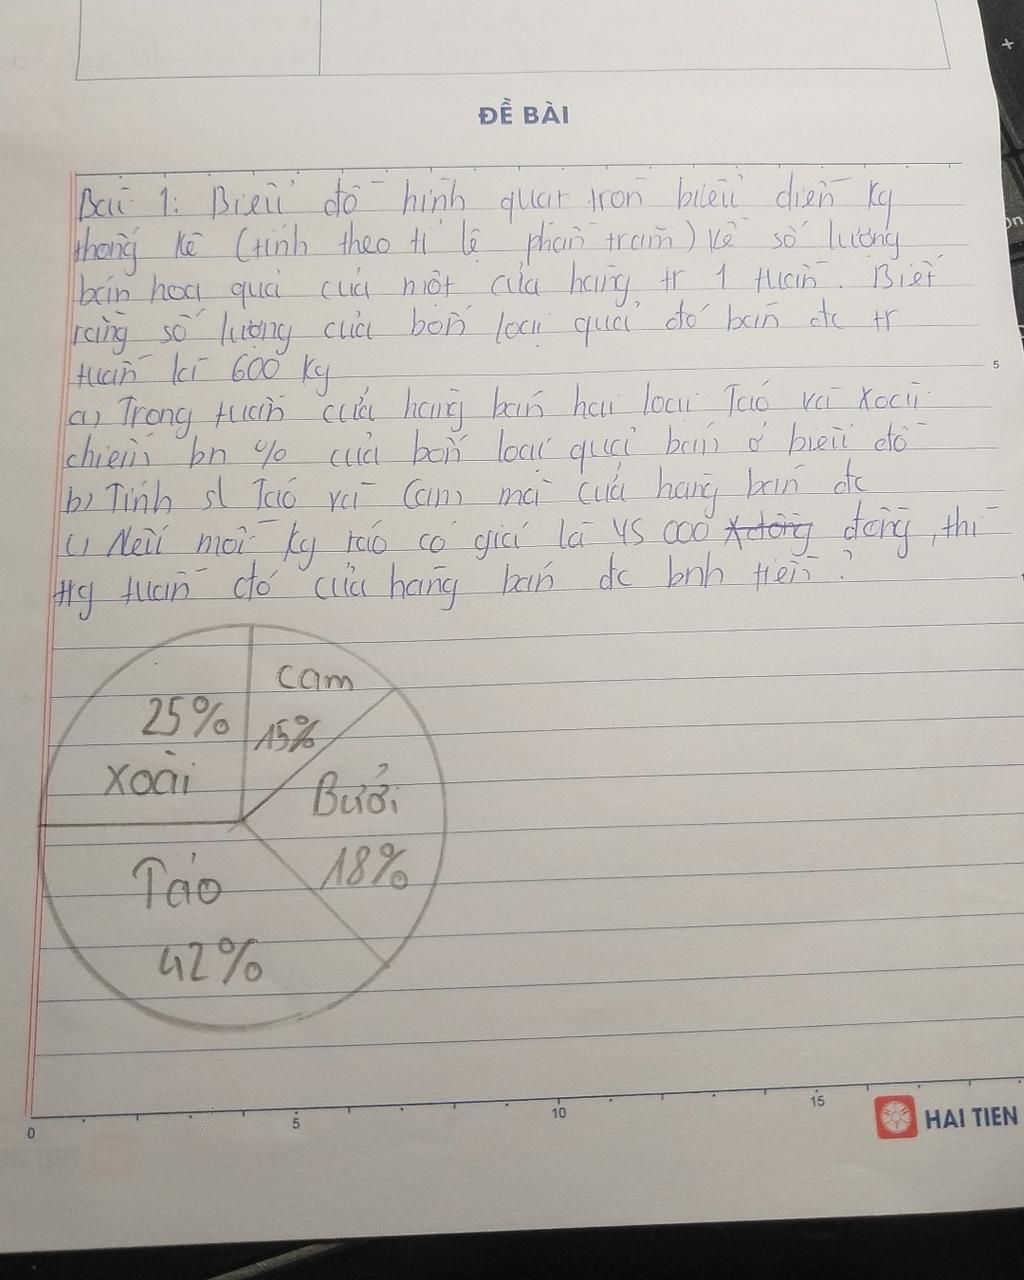 ĐỀ BÀI
Bài 1: Biểu đồ hình quạt tròn biểu diễn kq
thống kê (tính theo tỉ lệ phần trăm) về số lượng
bán hoa quả của một cửa hàng tr 1 tuần. Biết
rằng số lượng của bốn loại quả đó bán đc tr
tuần là 600 kg
a) Trong tuần cửa hàng bán hai loại Táo và Xoài
chiếm bn % của bốn loại quả bán ở biểu đồ
b) Tính sl Táo và Cam mà cửa hàng bán đc
c) Nếu mỗi kg táo có giá là 45 000 đồng, thì
trg tuần đó cửa hàng bán đc bnh tiền?
Cam
25% 15%
Xoài Bưởi
Táo 18%
42%
5
0 5 10 15
HAI TIEN